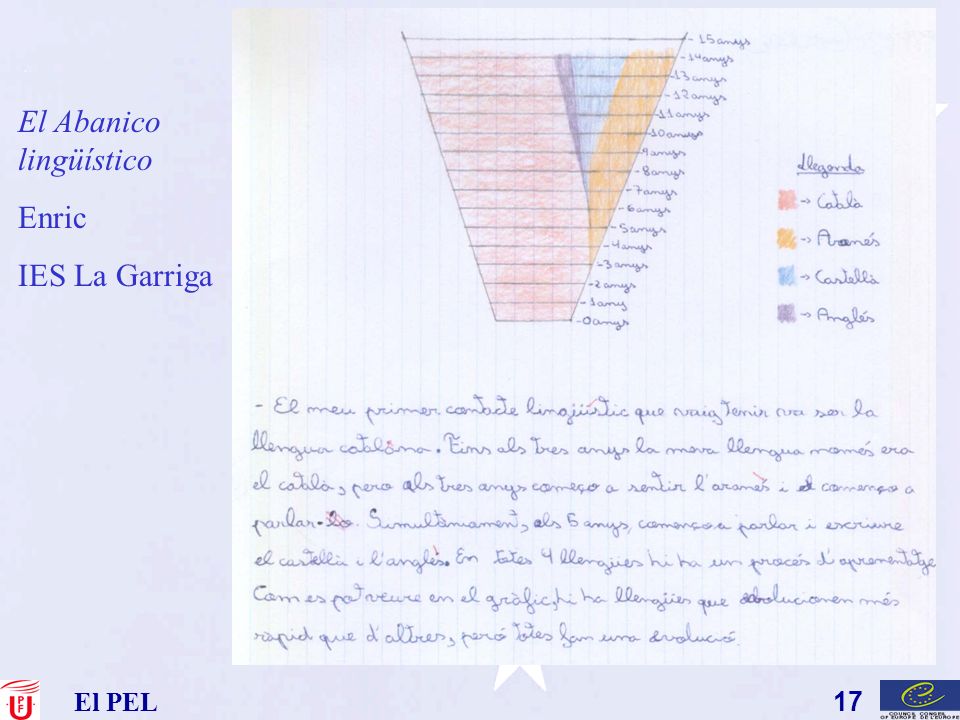 El Abanico
lingüístico
Enric
IES La Garriga
-15anys
-14anys
-13anys
-12anys
-11anys
-10anys
-9anys
-8anys
-7anys
-6anys
-5anys
-4anys
-3anys
-2anys
-1any
-0anys
Llegenda
-> Català
-> Aranés
-> Castellà
-> Anglés
- El meu primer contacte lingüístic que vaig tenir va ser la
llengua catalana. Fins als tres anys la meva llengua només era
el català, pero als tres anys començo a sentir l'aranés i començo a
parlar-lo. Simultàniament, als 5 anys, començo a parlar i escriure
el castellà i l'anglés. En totes 4 llengües hi ha un procés d'aprenentatge
Com es pot veure en el gràfic, hi ha llengües que evolucionen més
ràpid que d'altres, peró totes fan una evolució.
El PEL
17
UPF
COUNCIL CONSEIL
OF EUROPE DE L'EUROPE